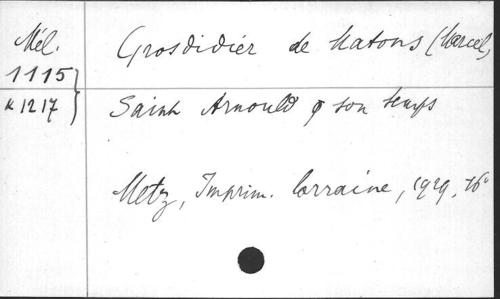 Mél.
1115
& 1217
Grosdidier de Matons (Marcel)
Saint Arnould & son temps
Metz, Imprim. lorraine, 1929, 16°